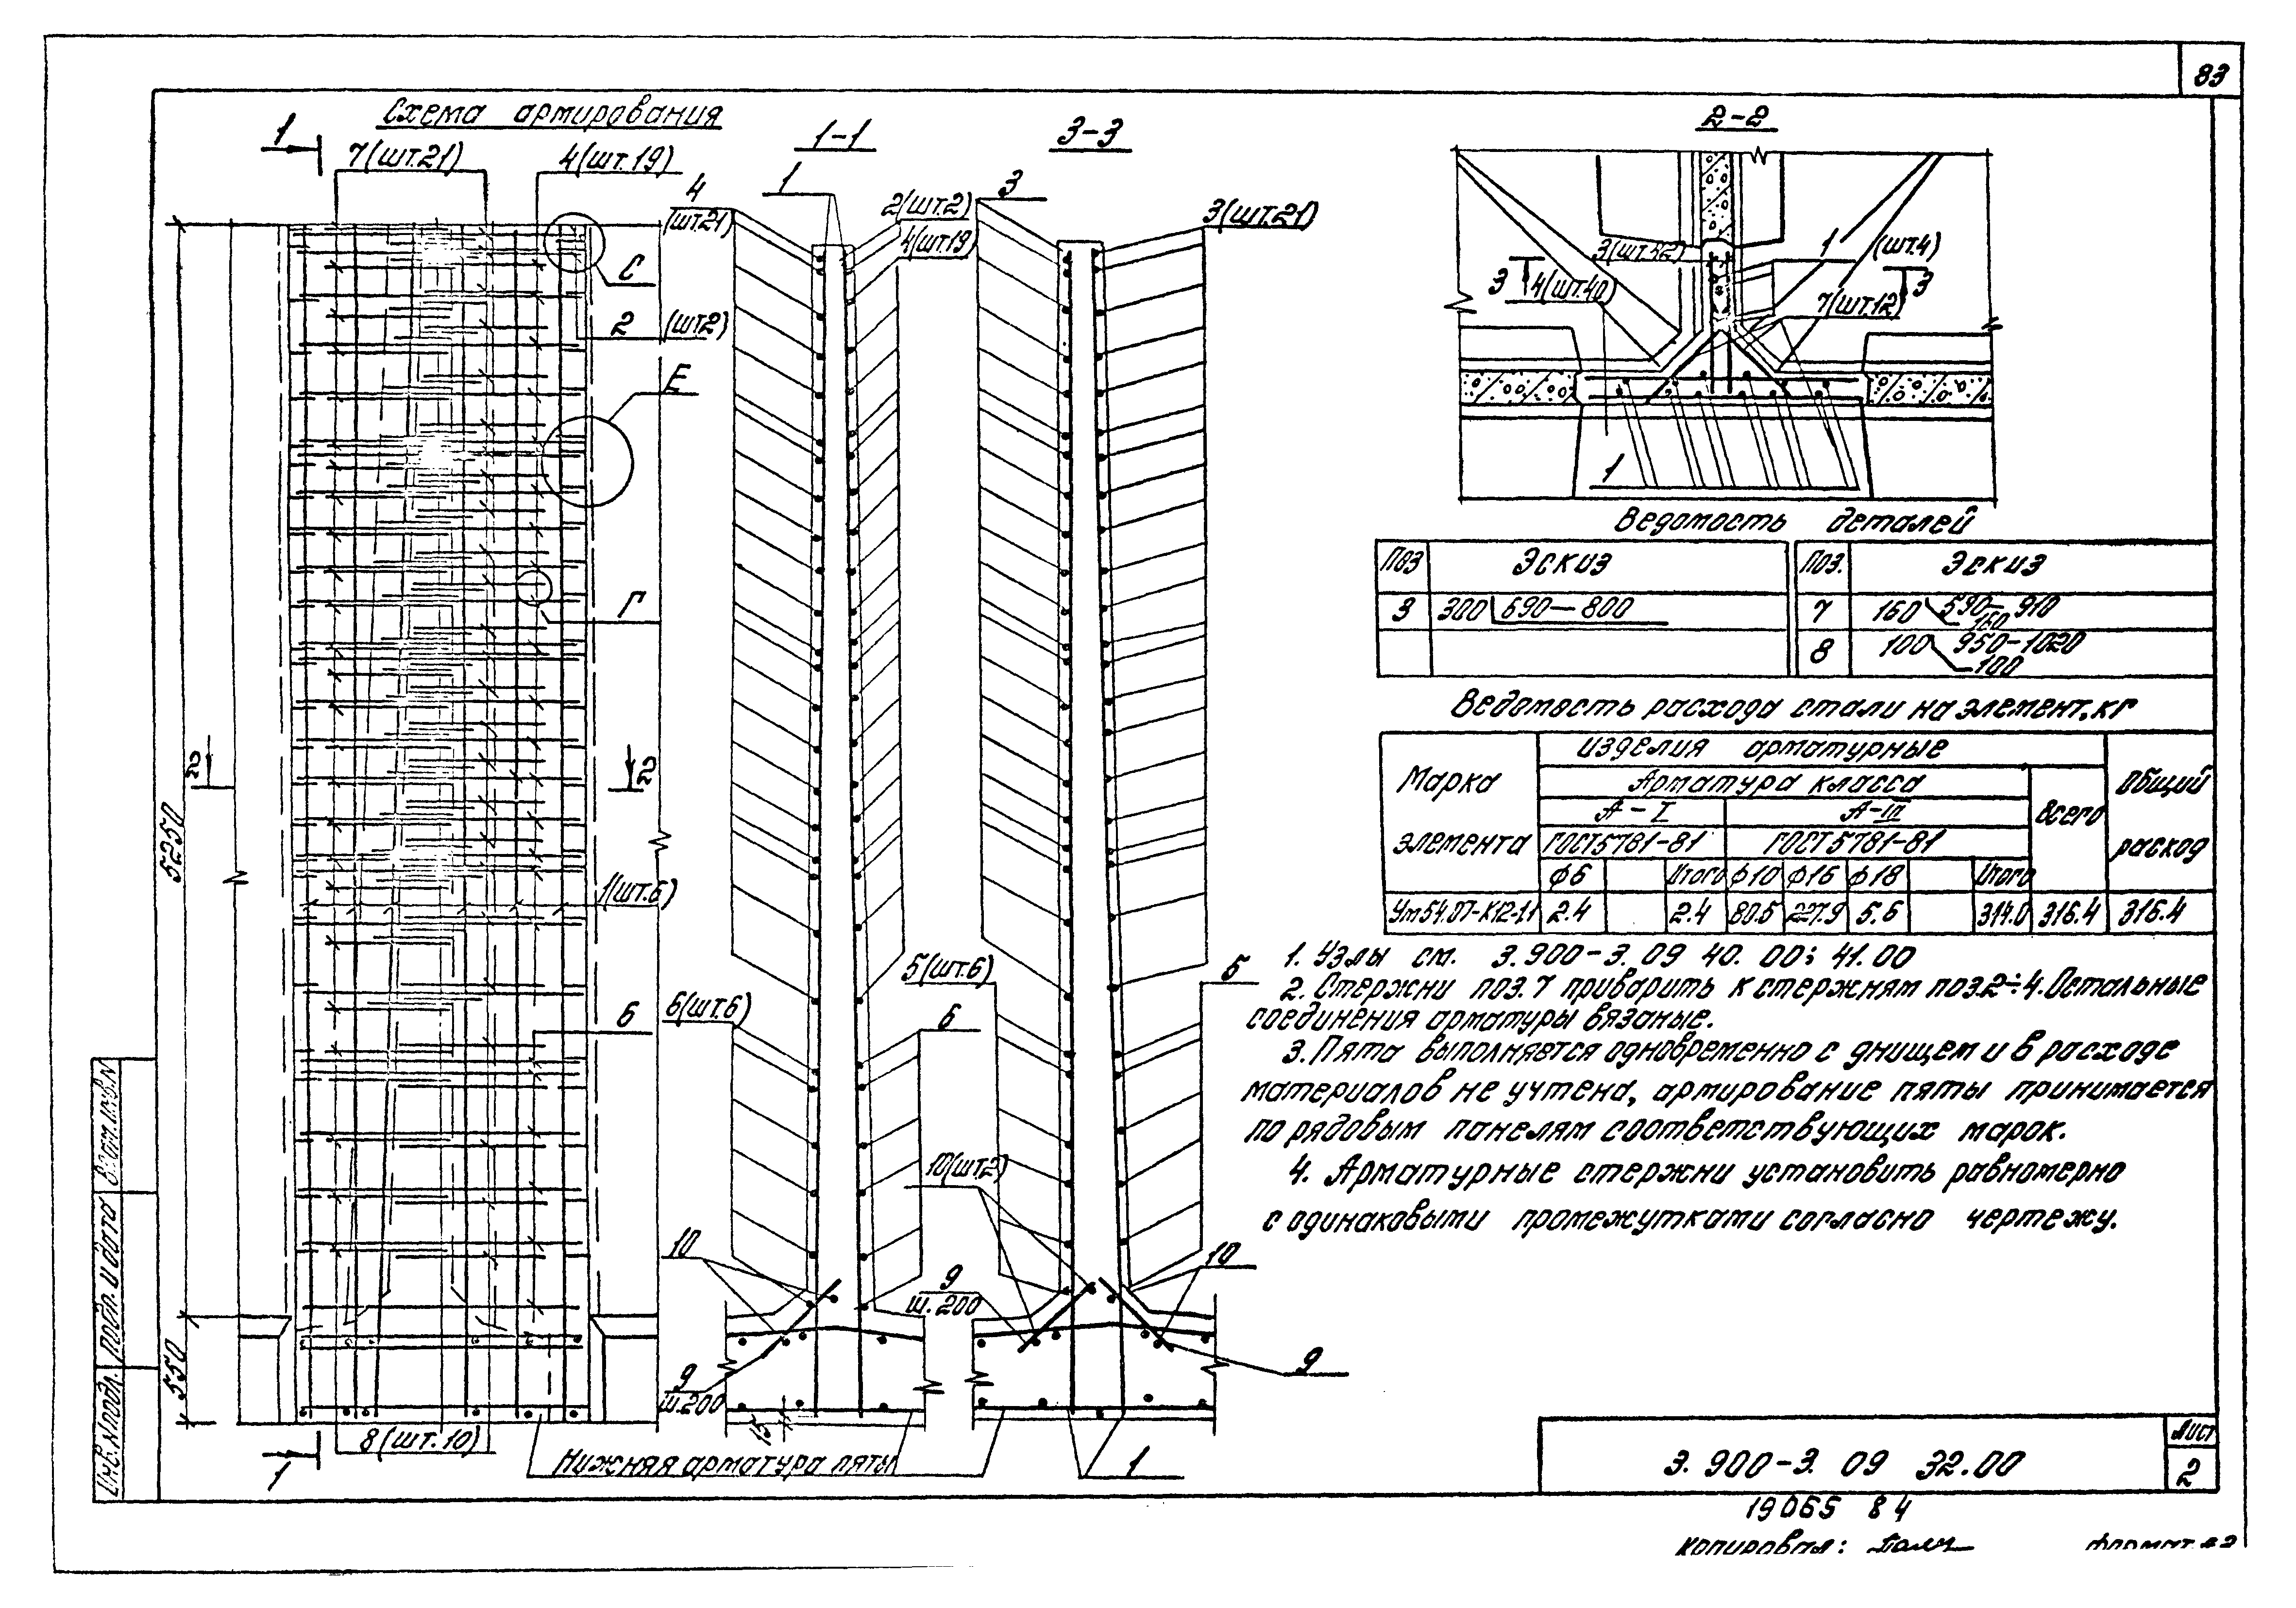 83
Схема армирования
1
7(шт.21)
4(шт.19)
С
2 (шт2)
Е
Г
2
2
5250
1(шт.6)
6
550
8(шт.10)
1
1-1
4
(шт.21)
1
2(шт.2)
4(шт.19)
6(шт.6)
6
10
9
ш.200
15
Нижняя арматура пяты
3-3
3
3(шт.21)
5(шт.6)
5
10(шт.2)
9
ш.200
10
9
1
2-2
3(шт.42)
1 (шт.4)
3
3
4(шт.40)
7(шт.12)
1
Ведомость деталей
Поз Эскиз Поз. Эскиз
3 300 690—800 7 160 590—910
160
8 100 950-1020
100
Ведомость расхода стали на элемент, кг
Марка элемента
Изделия арматурные
Общий расход
Арматура класса
Всего
А-I А-III
ГОСТ5781-81 ГОСТ5781-81
ф6 Итого ф10 ф16 ф18 Итого
Ум54.07-К12-1.1 2.4 2.4 80.5 227.9 5.6 314.0 316.4 316.4
1. Узлы см. 3.900-3. 09 40. 00; 41.00
2. Стержни поз.7 приварить к стержням поз.2÷4. Остальные
соединения арматуры вязаные.
3. Пята выполняется одновременно с днищем и в расходе
материалов не учтена, армирование пяты принимается
по рядовым панелям соответствующих марок.
4. Арматурные стержни установить равномерно
с одинаковыми промежутками согласно чертежу.
Инв.№подл. Подп. и дата Взам.инв.№
3. 900-3. 09 32.00
Лист
2
19065 84
Копировал:
формат